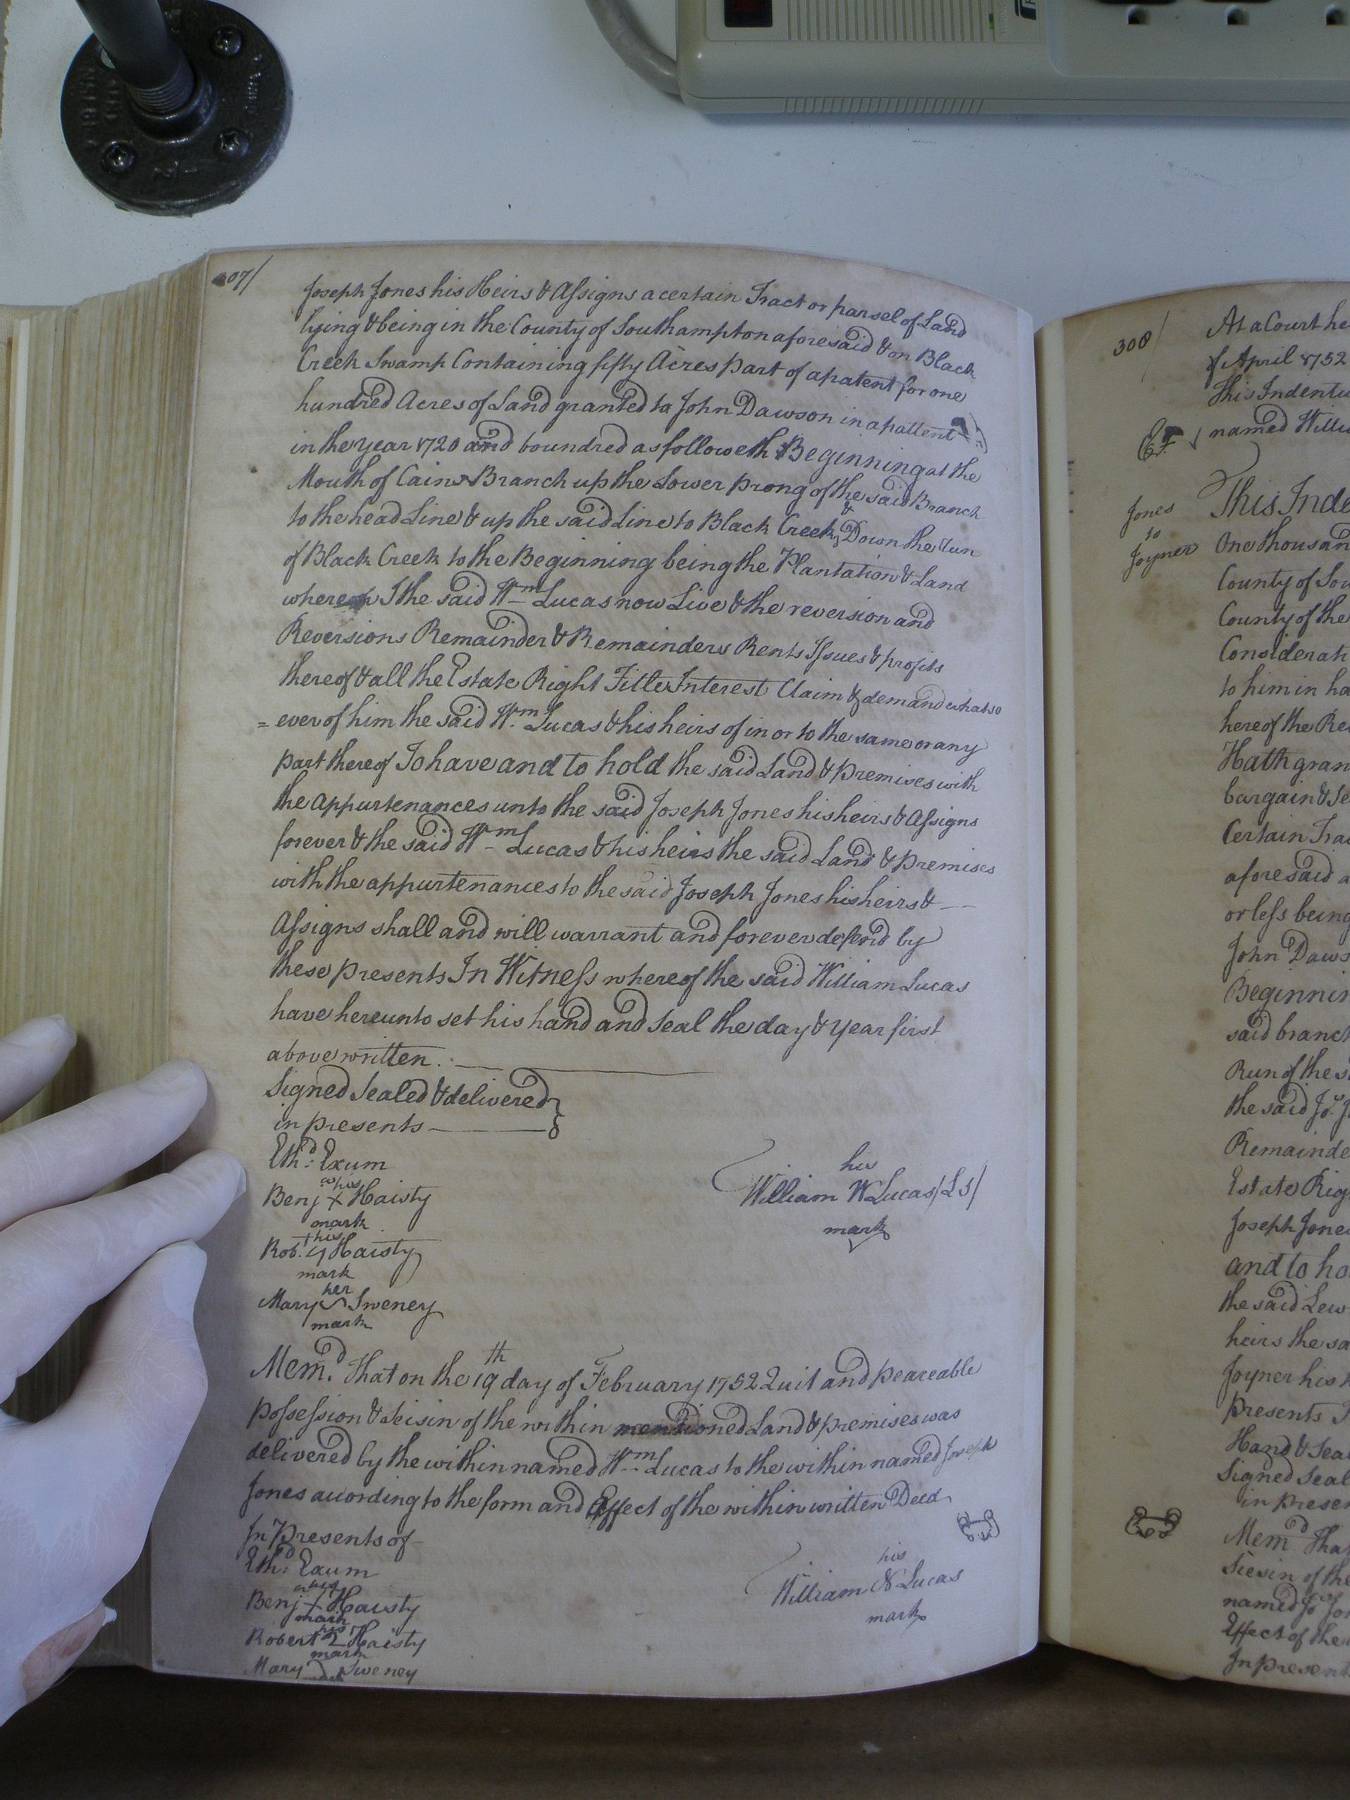 307/
Joseph Jones his Heirs & Assigns a certain Tract or parsel of Land
lying & being in the County of Southampton aforesaid & on Black
Creek Swamp Containing fifty Acres part of a patent for one
hundred Acres of Land granted to John Dawson in a pattent
in the year 1720 and boundred as followeth Beginning at the
Mouth of Cains Branch up the Lower prong of the said Branch
to the head Line & up the said Line to Black Creek, & Down the Run
of Black Creek to the Beginning being the Plantation & Land
whereon I the said Wm Lucas now Live & the reversion and
Reversions Remainder & Remainders Rents Issues & profits
thereof & all the Estate Right Title Interest Claim & demand whatso
= ever of him the said Wm Lucas & his heirs of in or to the same or any
part thereof To have and to hold the said Land & Premises with
the Appurtenances unto the said Joseph Jones his heirs & Assigns
forever & the said Wm Lucas & his heirs the said Land & Premises
with the appurtenances to the said Joseph Jones his heirs &
Assigns shall and will warrant and forever defend by
these presents In Witness whereof the said William Lucas
have hereunto set his hand and Seal the day & year first
above written.
Signed Sealed & delivered
in presents
Ethd: Exum
his
Benj X Haisty
mark
his
Rob. Haisty
mark
her
Mary Sweney
mark
his
William W Lucas (LS)
mark
Memd. That on the 19th day of February 1752 Quit and peaceable
Possession & Seisin of the within mentioned Land & premises was
delivered by the within named Wm Lucas to the within named Joseph
Jones according to the form and Effect of the within written Deed
In Presents of
Ethd: Exum
his
Benj X Haisty
mark
his
Robert Haisty
mark
Mary Sweney
his
William W Lucas
mark
308/
At a Court he
of April 1752
This Indentu
named Willi
Ex
Jones
to
Joyner
This Inde
One thousan
County of Sou
County of the
Considerati
to him in ha
hereof the Re
Hath gran
bargain & Se
Certain Tra
aforesaid a
or less being
John Daws
Beginnin
said branch
Run of the s
the said Jos. J
Remainde
Estate Rig
Joseph Jone
and to ho
the said Lew
heirs the sa
Joyner his h
presents I
Hand & Seal
Signed Seal
in presen
Memd Tha
Siesin of the
named Jos Jo
Effect of the
In presen